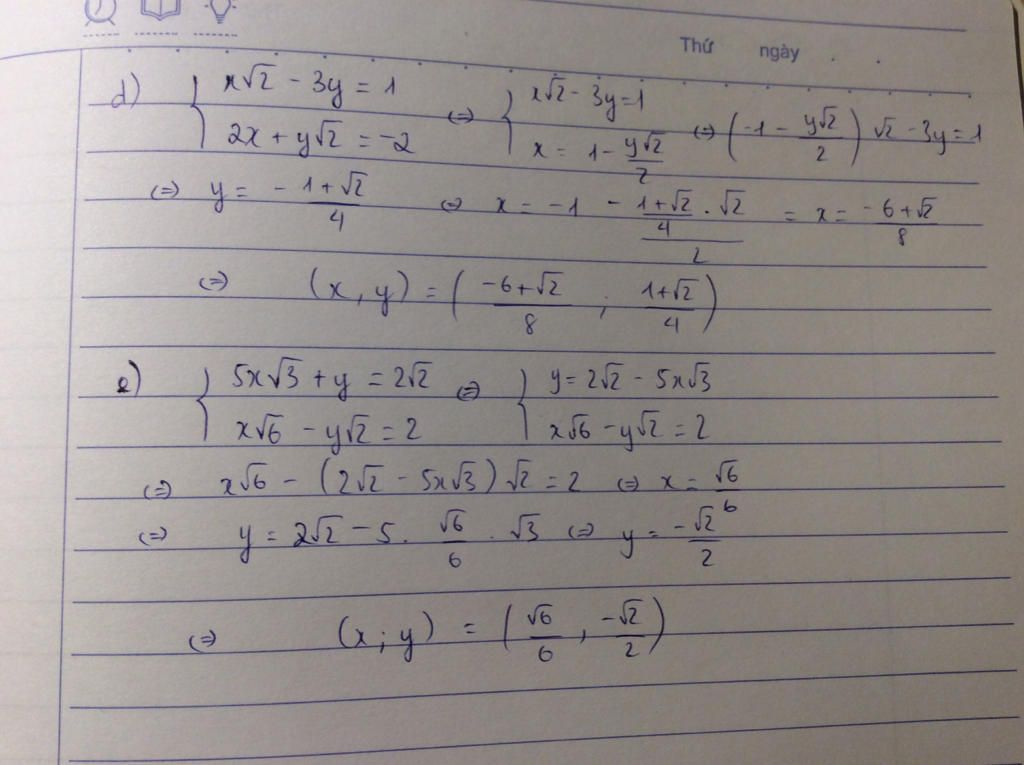 Thứ ngày . .
d) { x√2 - 3y = 1 ; 2x + y√2 = -2 ⇔ { x√2 - 3y = 1 ; x = 1 - y√2/2 ⇔ (-1 - y√2/2) √2 - 3y = 1
⇔ y = - (1+√2)/4 ⇔ x = -1 - ((1+√2)/4 . √2)/2 = x = (-6+√2)/8
⇔ (x, y) = ((-6+√2)/8 ; (1+√2)/4)
e) { 5x√3 + y = 2√2 ; x√6 - y√2 = 2 ⇔ { y = 2√2 - 5x√3 ; x√6 - y√2 = 2
⇔ x√6 - (2√2 - 5x√3) √2 = 2 ⇔ x = √6/6
⇔ y = 2√2 - 5 . √6/6 . √3 ⇔ y = -√2/2
⇔ (x; y) = (√6/6 , -√2/2)